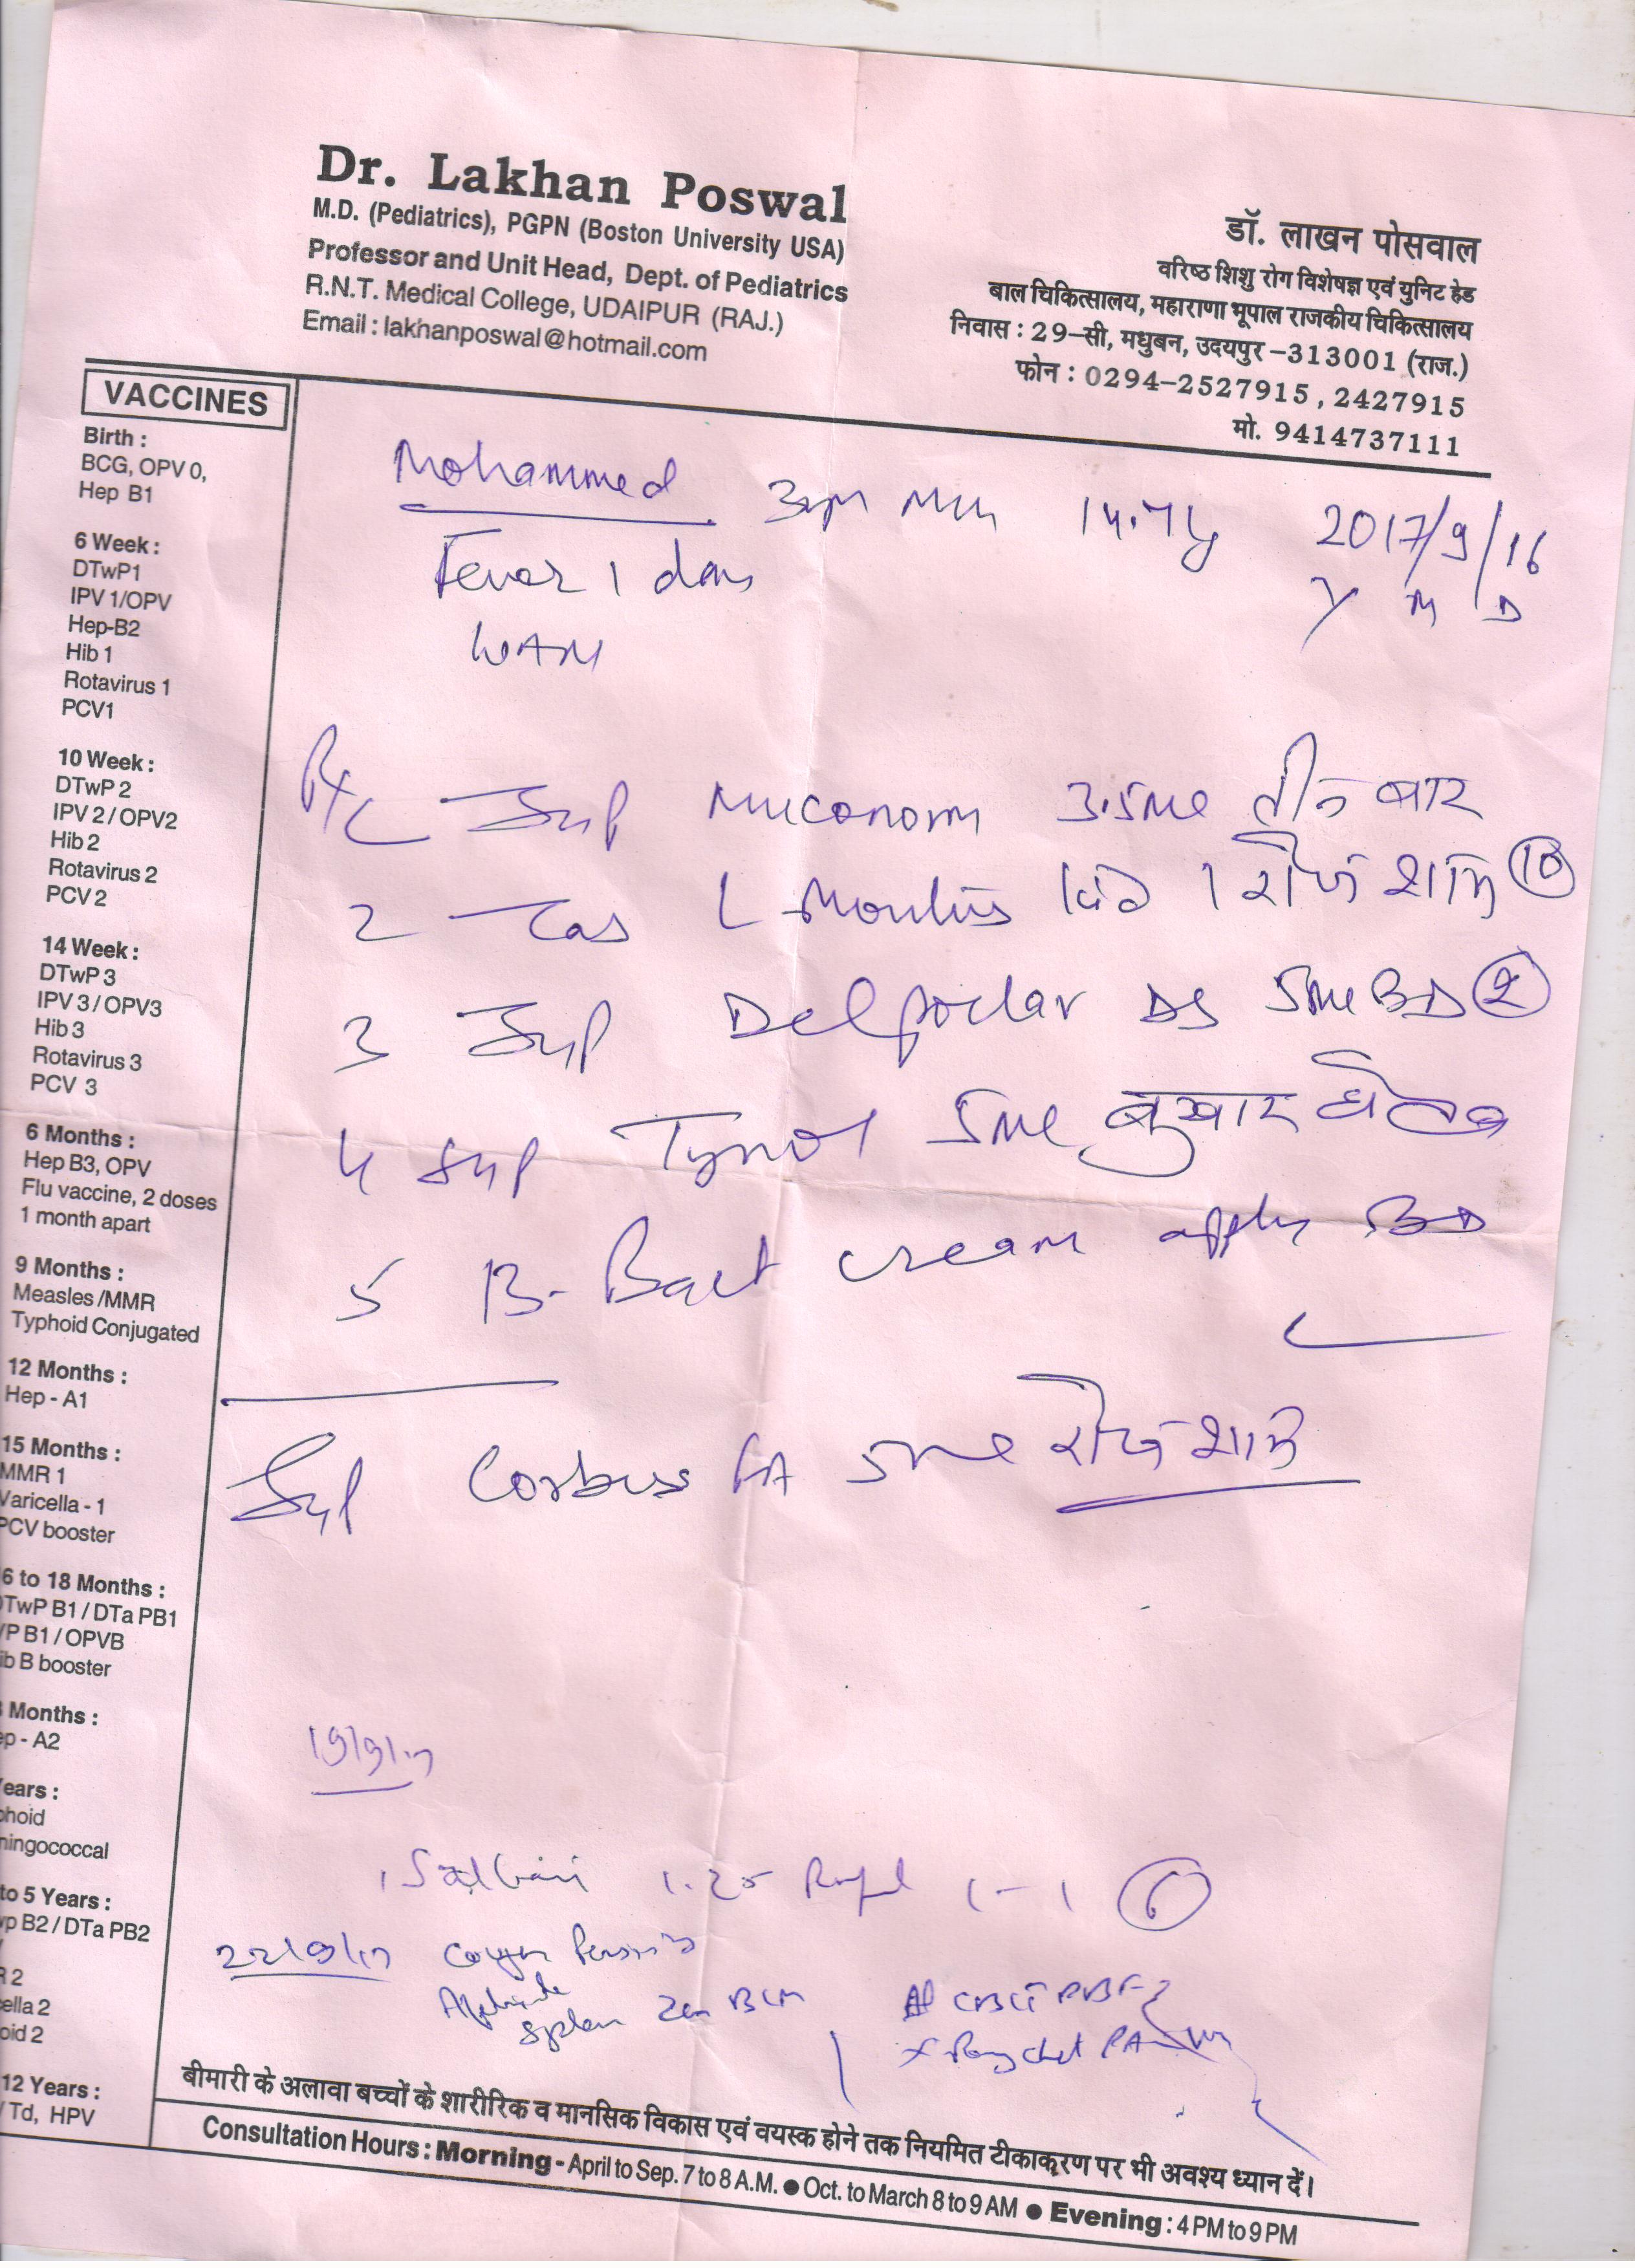 Dr. Lakhan Poswal
M.D. (Pediatrics), PGPN (Boston University USA)
Professor and Unit Head, Dept. of Pediatrics
R.N.T. Medical College, UDAIPUR (RAJ.)
Email : lakhanposwal@hotmail.com
डॉ. लाखन पोसवाल
वरिष्ठ शिशु रोग विशेषज्ञ एवं युनिट हेड
बाल चिकित्सालय, महाराणा भूपाल राजकीय चिकित्सालय
निवास : 29-सी, मधुबन, उदयपुर-313001 (राज.)
फोन : 0294-2527915, 2427915
मो. 9414737111
VACCINES
Birth :
BCG, OPV 0,
Hep B1
6 Week :
DTwP1
IPV 1/OPV
Hep-B2
Hib 1
Rotavirus 1
PCV1
10 Week :
DTwP 2
IPV 2 / OPV2
Hib 2
Rotavirus 2
PCV 2
14 Week :
DTwP 3
IPV 3 / OPV3
Hib 3
Rotavirus 3
PCV 3
6 Months :
Hep B3, OPV
Flu vaccine, 2 doses
1 month apart
9 Months :
Measles /MMR
Typhoid Conjugated
12 Months :
Hep - A1
15 Months :
MMR 1
Varicella - 1
PCV booster
6 to 18 Months :
DTwP B1 / DTa PB1
VP B1 / OPVB
ib B booster
Months :
ep - A2
ears :
phoid
ningococcal
to 5 Years :
vp B2 / DTa PB2
R 2
cella 2
oid 2
12 Years :
/ Td, HPV
Mohammed 14.7 2017/9/16
Y M D
Fever 1 days
Syp Muconorm 3.5ml तीन बार
2 Tab 1 रोज शाम 10
3 Syp Delpoclar DS 5ml BD 2
4 Syp 5ml बुखार
5 B-Bact cream apply BD
Syp 5ml रोज शाम
19/9/17
1.25 1-1 6
22/9/17
बीमारी के अलावा बच्चों के शारीरिक व मानसिक विकास एवं वयस्क होने तक नियमित टीकाकरण पर भी अवश्य ध्यान दें।
Consultation Hours : Morning - April to Sep. 7 to 8 A.M. ● Oct. to March 8 to 9 AM ● Evening : 4 PM to 9 PM